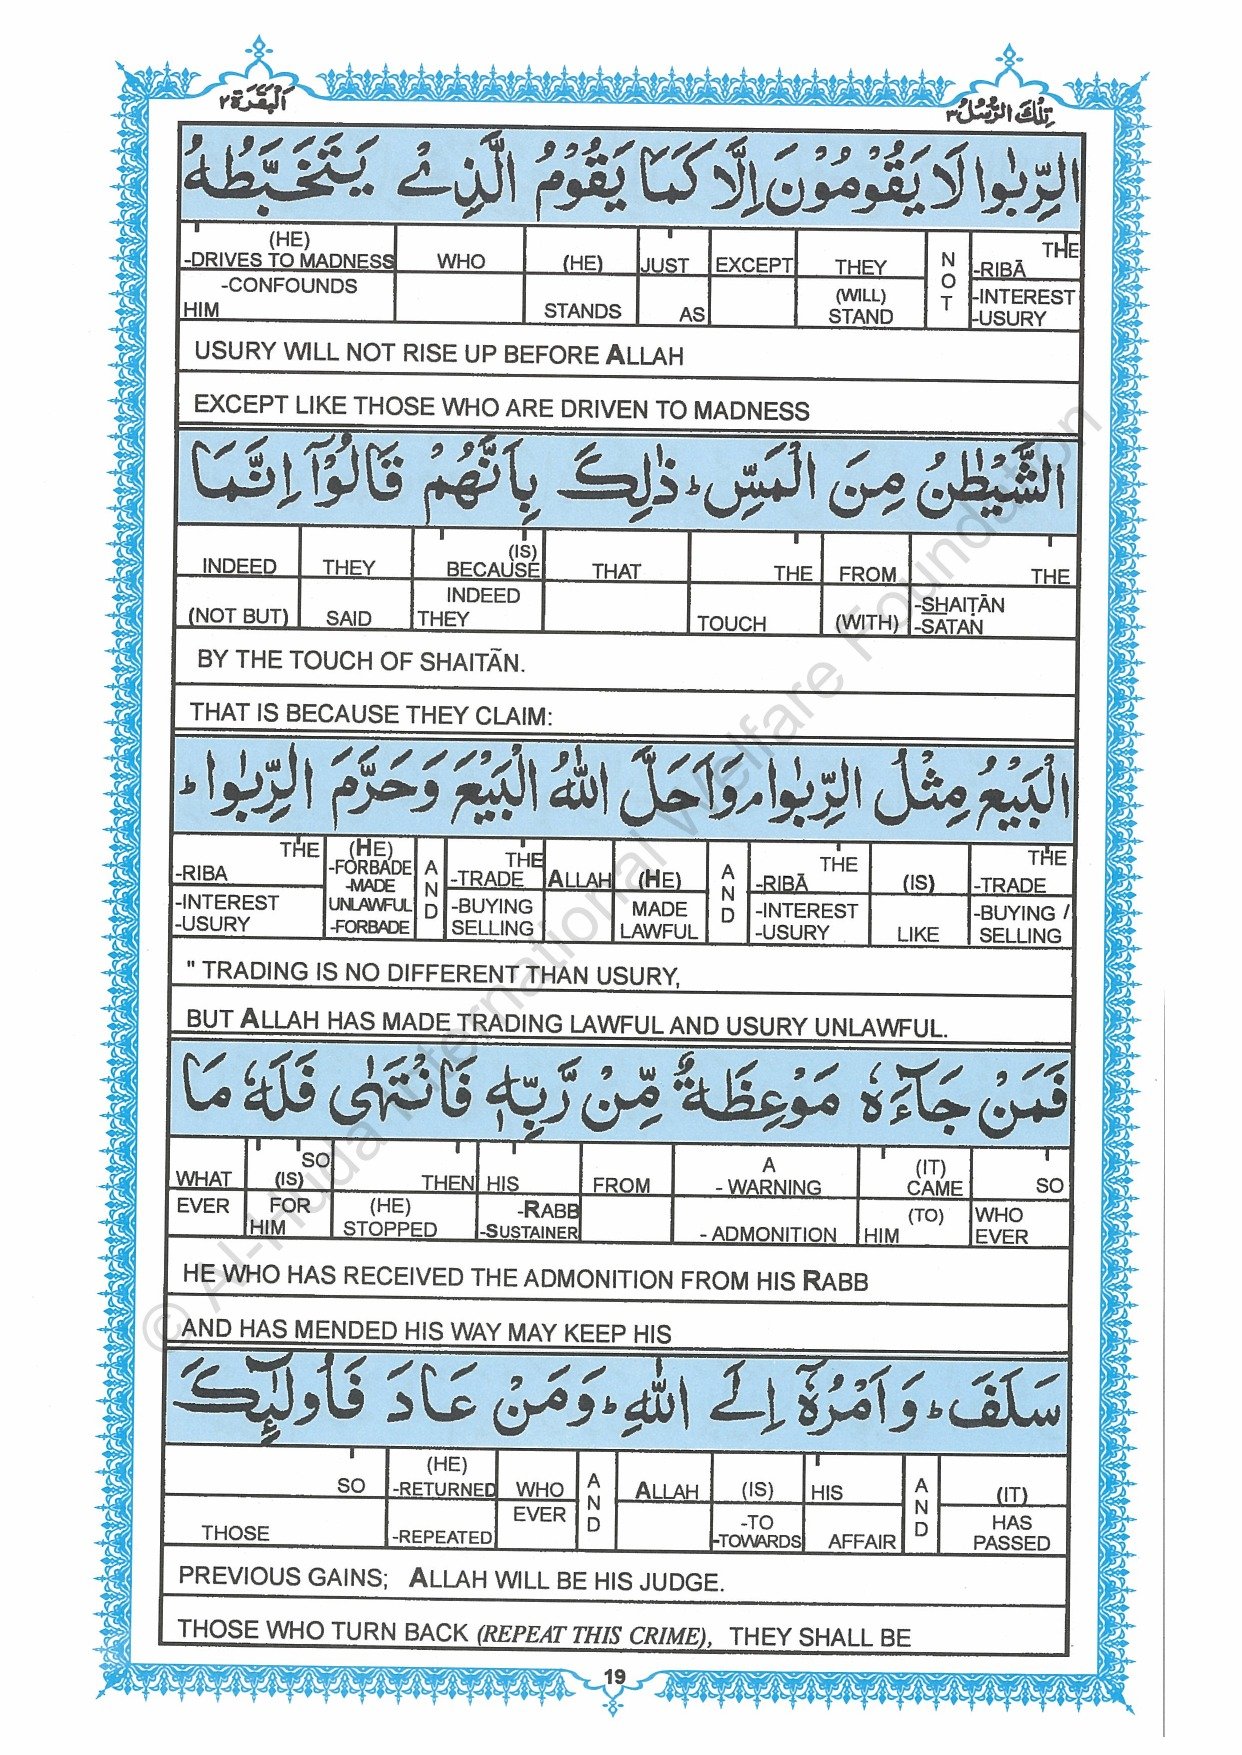 البقرة ٢
تلك الرسل ٣
الرِّبٰوا لَا يَقُوْمُوْنَ اِلَّا كَمَا يَقُوْمُ الَّذِيْ يَتَخَبَّطُهُ
(HE) THE
-DRIVES TO MADNESS WHO (HE) JUST EXCEPT THEY NOT -RIBĀ
-CONFOUNDS (WILL) -INTEREST
HIM STANDS AS STAND -USURY
USURY WILL NOT RISE UP BEFORE ALLAH
EXCEPT LIKE THOSE WHO ARE DRIVEN TO MADNESS
الشَّيْطٰنُ مِنَ الْمَسِّ ؕ ذٰلِكَ بِاَنَّهُمْ قَالُوْٓا اِنَّمَا
(IS)
INDEED THEY BECAUSE THAT THE FROM THE
INDEED -SHAIṬĀN
(NOT BUT) SAID THEY TOUCH (WITH) -SATAN
BY THE TOUCH OF SHAITÃN.
THAT IS BECAUSE THEY CLAIM:
الْبَيْعُ مِثْلُ الرِّبٰوا ۘ وَاَحَلَّ اللّٰهُ الْبَيْعَ وَحَرَّمَ الرِّبٰوا ؕ
THE (HE) THE THE THE
-RIBA -FORBADE AND -TRADE ALLAH (HE) AND -RIBĀ (IS) -TRADE
-MADE
-INTEREST UNLAWFUL -BUYING MADE -INTEREST -BUYING /
-USURY -FORBADE SELLING LAWFUL -USURY LIKE SELLING
" TRADING IS NO DIFFERENT THAN USURY,
BUT ALLAH HAS MADE TRADING LAWFUL AND USURY UNLAWFUL.
فَمَنْ جَآءَهٗ مَوْعِظَةٌ مِّنْ رَّبِّهٖ فَانْتَهٰى فَلَهٗ مَا
SO A (IT)
WHAT (IS) THEN HIS FROM - WARNING CAME SO
EVER FOR (HE) -RABB (TO) WHO
HIM STOPPED -SUSTAINER - ADMONITION HIM EVER
HE WHO HAS RECEIVED THE ADMONITION FROM HIS RABB
AND HAS MENDED HIS WAY MAY KEEP HIS
سَلَفَ ؕ وَاَمْرُهٗٓ اِلَى اللّٰهِ ؕ وَمَنْ عَادَ فَاُولٰٓئِكَ
(HE)
SO -RETURNED WHO AND ALLAH (IS) HIS AND (IT)
EVER -TO HAS
THOSE -REPEATED -TOWARDS AFFAIR PASSED
PREVIOUS GAINS; ALLAH WILL BE HIS JUDGE.
THOSE WHO TURN BACK (REPEAT THIS CRIME), THEY SHALL BE
19
© Al-Huda International Welfare Foundation